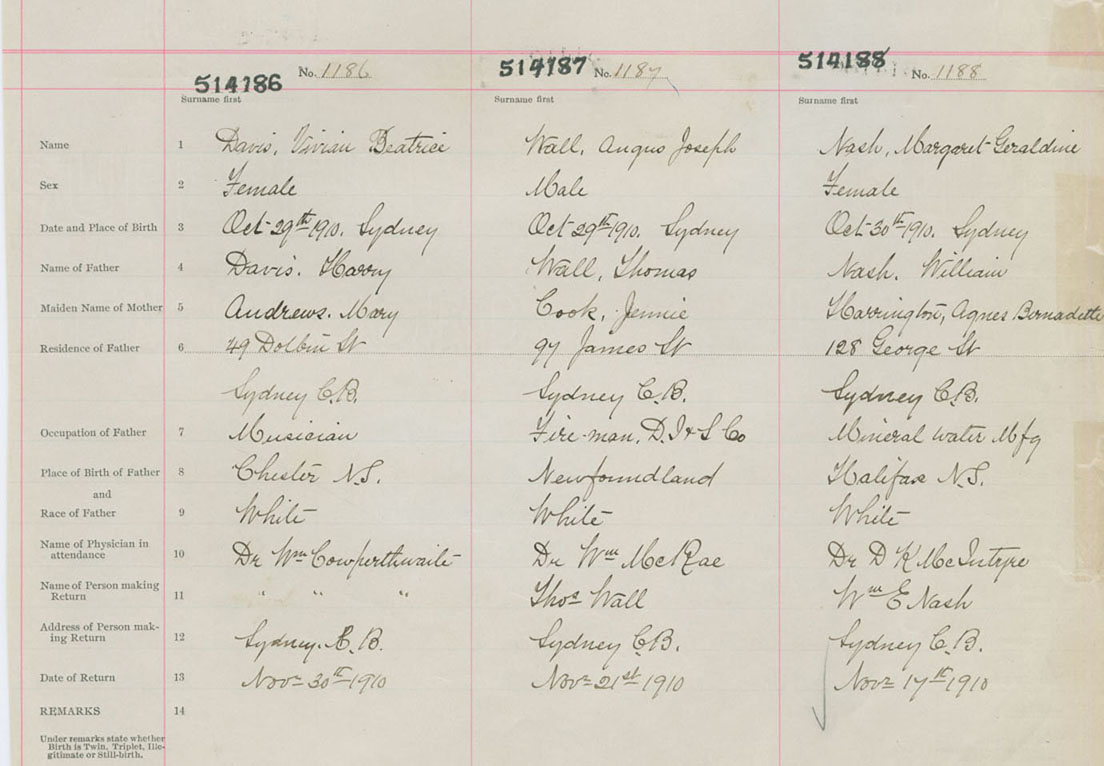 514186 No. 1186 514187 No. 1187 514188 No. 1188
Surname first Surname first Surname first
Name 1 Davis, Vivian Beatrice Wall, Angus Joseph Nash, Margaret Geraldine
Sex 2 Female Male Female
Date and Place of Birth 3 Oct 29th 1910. Sydney Oct 29th 1910. Sydney Oct 30th 1910. Sydney
Name of Father 4 Davis. Harry Wall, Thomas Nash. William
Maiden Name of Mother 5 Andrews. Mary Cook, Jennie Harrington, Agnes Bernadette
Residence of Father 6 49 Dolbin St 97 James St 128 George St
Sydney C.B. Sydney C.B. Sydney C.B.
Occupation of Father 7 Musician Fire-man, D.I & S Co Mineral water Mfg
Place of Birth of Father 8 Chester N.S. Newfoundland Halifax N.S.
and
Race of Father 9 White White White
Name of Physician in
attendance 10 Dr Wm Cowperthwaite Dr Wm McRae Dr D K McIntyre
Name of Person making
Return 11 " " " Thos Wall Wm E Nash
Address of Person mak-
ing Return 12 Sydney. C.B. Sydney C.B. Sydney C.B.
Date of Return 13 Nov 30th 1910 Nov 21st 1910 Nov 17th 1910
REMARKS 14
Under remarks state whether
Birth is Twin, Triplet, Ille-
gitimate or Still-birth.